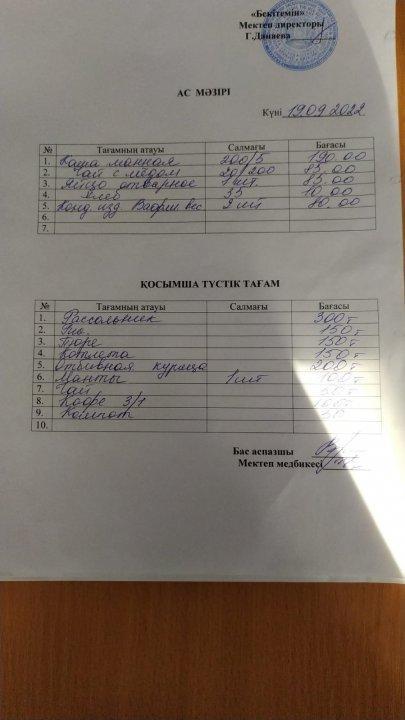 «Бекітемін»
Мектеп директоры
Г.Данаева
АС МӘЗІРІ
Күні 19.09.2022
№ Тағамның атауы Салмағы Бағасы
1. Каша манная 200/5 190.00
2. Чай с мёдом 20/200 85.00
3. Яйцо отварное 1 шт. 85.00
4. Хлеб 35 10.00
5. Конд. изд. Вафли вес 2 шт 80.00
6.
7.
ҚОСЫМША ТҮСТІК ТАҒАМ
№ Тағамның атауы Салмағы Бағасы
1. Рассольник 300т
2. 150т
3. Пюре 150т
4. Котлета 150т
5. Отбивная курица 200т
6. Манты 1 шт 100т
7. Чай
8. Кофе 3/1
9. Компот 50
10.
Бас аспазшы
Мектеп медбикесі